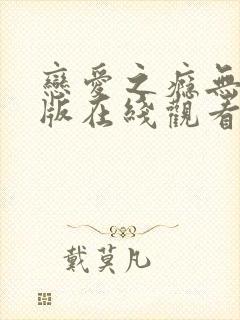 戀愛之癮無
版在綫觀看
戴莫凡